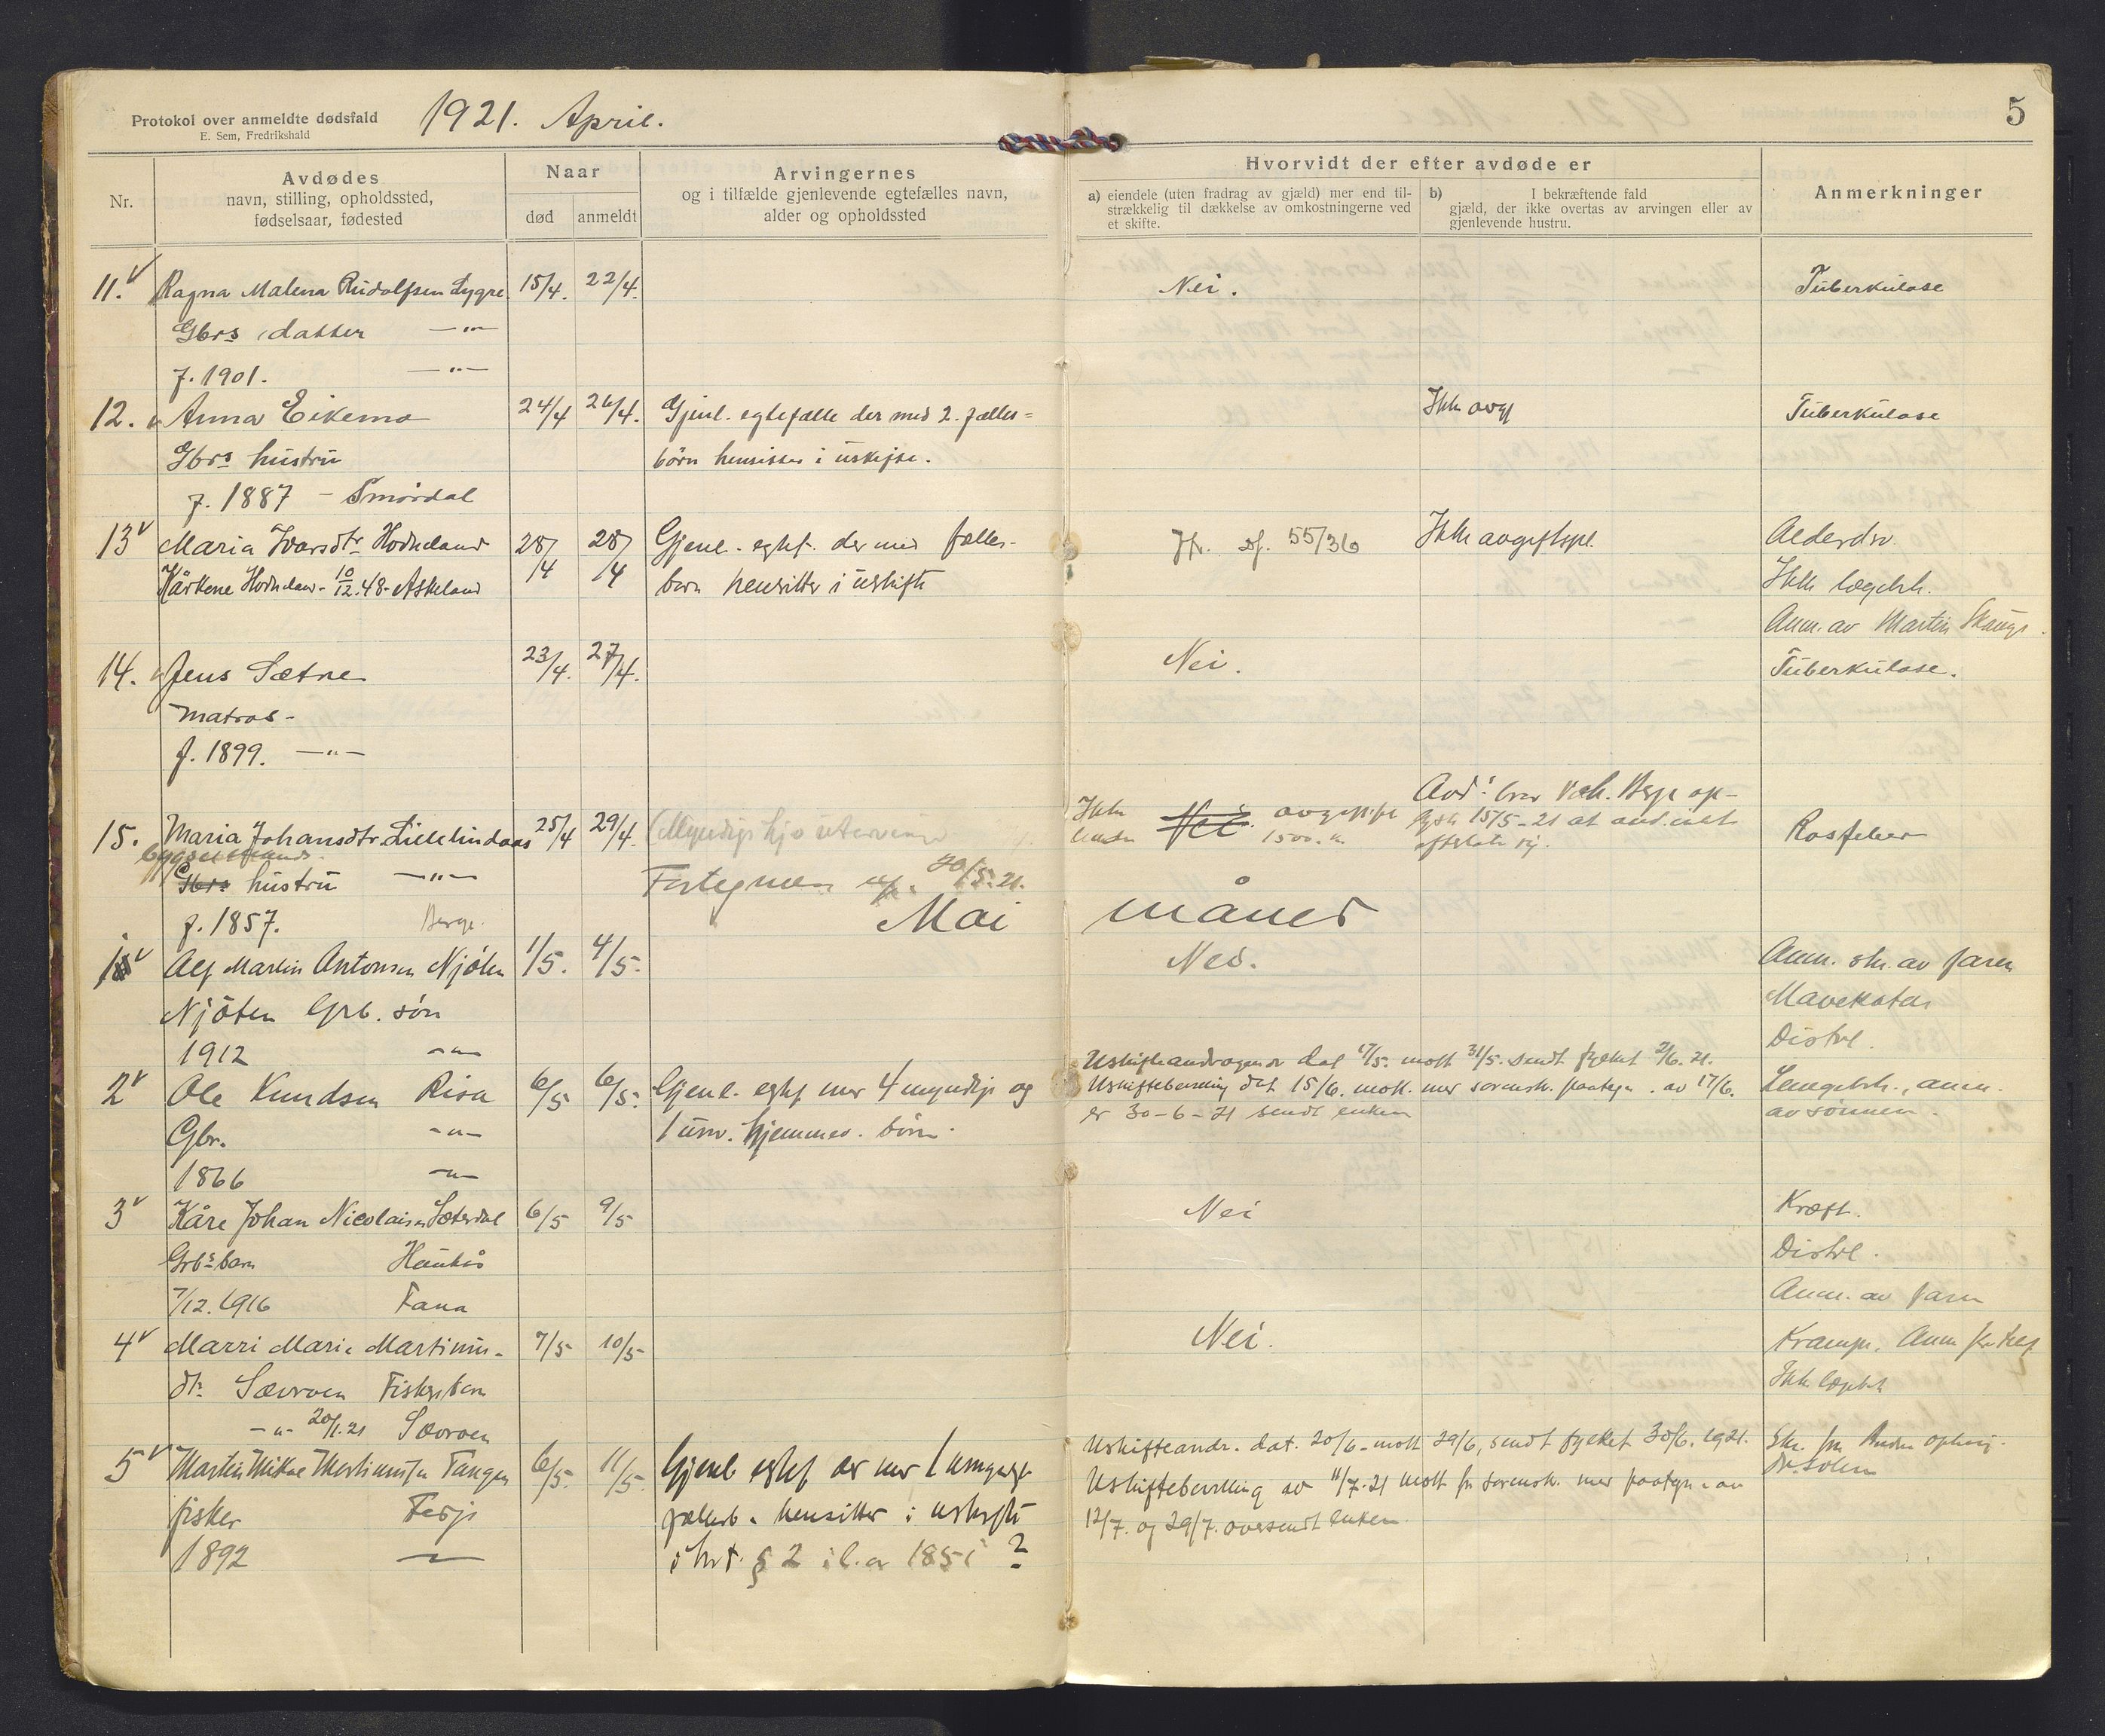 Protokol over anmeldte dødsfald
E. Sem, Fredrikshald
1921. April.
5
Nr.
Avdødes
navn, stilling, opholdssted,
fødselsaar, fødested
Naar
død
anmeldt
Arvingernes
og i tilfælde gjenlevende egtefælles navn,
alder og opholdssted
Hvorvidt der efter avdøde er
a) eiendele (uten fradrag av gjæld) mer end til-
strækkelig til dækkelse av omkostningerne ved
et skifte.
b) I bekræftende fald
gjæld, der ikke overtas av arvingen eller av
gjenlevende hustru.
Anmerkninger
11. Ragna Malena Rudolfsen Lygre 15/4. 22/4. Nei. Tuberkulose
Gbrs datter —"—
f. 1901. —"—
12. Anna Eikemo 24/4 26/4. Gjenl. egtefælle der med 2. fælles= Ikke avgf Tuberkulose
Gbrs hustru børn hensitter i uskifte.
f. 1887 - Smørdal
13 Maria Ivarsdtr Hodneland 28/4 28/4 Gjenl. egtef. der med fælles- Jfr. 55/36 Ikke avgiftspl. Alderdom
Kårkone Hodneland - 10/12.48 - Askeland barn hensitter i uskifte Ikke lægebeh.
Anm. av Martin
14. Jens Sætre 23/4. 27/4. Nei. Tuberkulose.
matros -
f. 1899. —"—
15. Maria Johansdtr. Lillelindaas 25/4 29/4. Ikke Nei. 1500. kr Rosfeber
15/5-21 at
Gbrs hustru —"— 20/5.21.
f. 1857. Berge.
Mai måned
1 Alf Martin Antonsen Njåten 1/5. 4/5. Nei. Anm. skr. av faren
Njåten Grb. søn Mavekatar
1912 —"— Distrl.
2 Ole Knudsen Risa 6/5 6/5. Gjenl. egtef med 4 myndige og
Gbr. —"— 1 umv. hjemmev. børn.
1866 —"—
Uskifteandragende dat 17/5. mott 31/5. sendt fylket 2/6. 21.
Uskiftebevilling dat 15/6. mott. med sorensk. paategn. av 17/6.
er 30-6-21 sendt enken
Lægebeh., anm.
av sønnen.
3 Kåre Johan Nicolaisen Sæterdal 6/5 9/5 Nei Kræft.
Grbs barn Haukås Distrl.
7/12. 1916 Fana Anm. av faren
4 Marri Marie Martinus- 7/5 10/5 Nei. Krampe. Anm
dtr Sævroen Fiskers barn Ikke lægebeh
—"— 20/1.21 Sævroen
5 Martin Mikal Martinussen Tangen 6/5. 11/5. Gjenl egtef der med 1 umyndig
fisker Fedje fællesb. hensitter i uskifte
1892 § 2 i l. av 1851 ?
Uskifteandr. dat. 20/6 - mott 29/6, sendt fylket 30/6. 1921.
Uskiftebevilling av 11/7.21 mott fr sorensk. med paategn. av
12/7. og 29/7. oversendt enken.